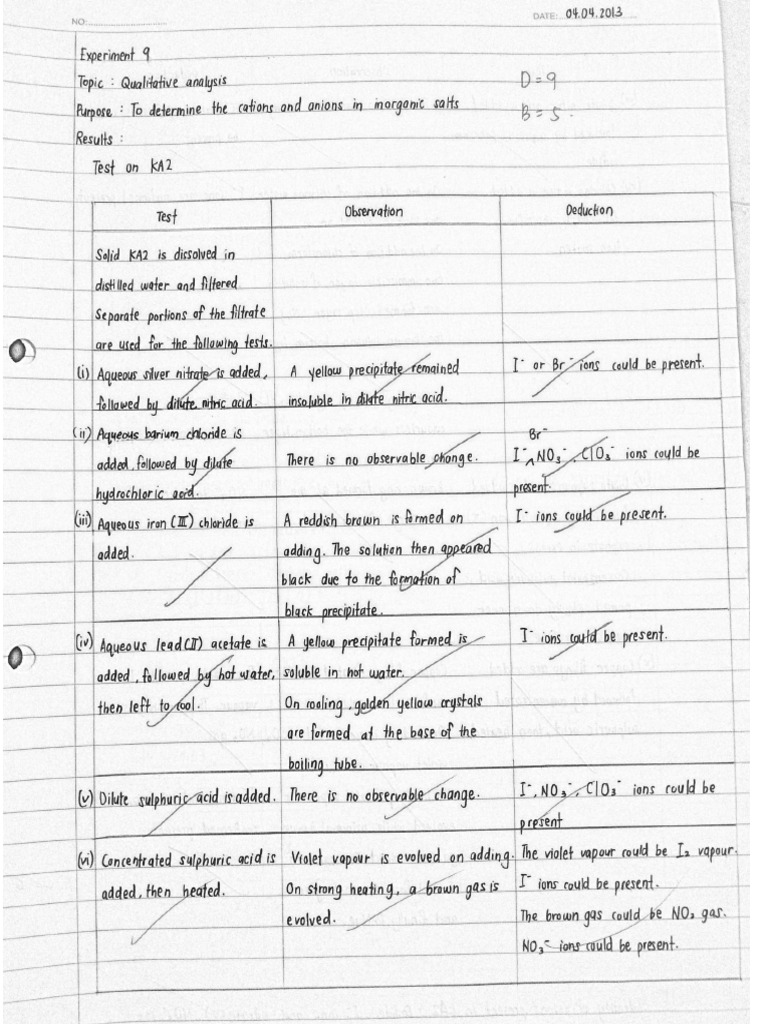 NO: DATE: 04.04.2013
Experiment 9
Topic : Qualitative analysis D = 9
Purpose : To determine the cations and anions in inorganic salts B = 5.
Results :
Test on KA2
Test Observation Deduction
Solid KA2 is dissolved in
distilled water and filtered
Separate portions of the filtrate
are used for the following tests.
(i) Aqueous silver nitrate is added, A yellow precipitate remained I⁻ or Br⁻ ions could be present.
followed by dilute nitric acid. insoluble in dilute nitric acid.
(ii) Aqueous barium chloride is Br⁻
added, followed by dilute There is no observable change. I⁻ ^ NO₃⁻, ClO₃⁻ ions could be
hydrochloric acid. present.
(iii) Aqueous iron (III) chloride is A reddish brown is formed on I⁻ ions could be present.
added. adding. The solution then appeared
black due to the formation of
black precipitate.
(iv) Aqueous lead(II) acetate is A yellow precipitate formed is I⁻ ions could be present.
added, followed by hot water, soluble in hot water.
then left to cool. On cooling, golden yellow crystals
are formed at the base of the
boiling tube.
(v) Dilute sulphuric acid is added. There is no observable change. I⁻, NO₃⁻, ClO₃⁻ ions could be
present
(vi) Concentrated sulphuric acid is Violet vapour is evolved on adding. The violet vapour could be I₂ vapour.
added, then heated. On strong heating, a brown gas is I⁻ ions could be present.
evolved. The brown gas could be NO₂ gas.
NO₃⁻ ions could be present.